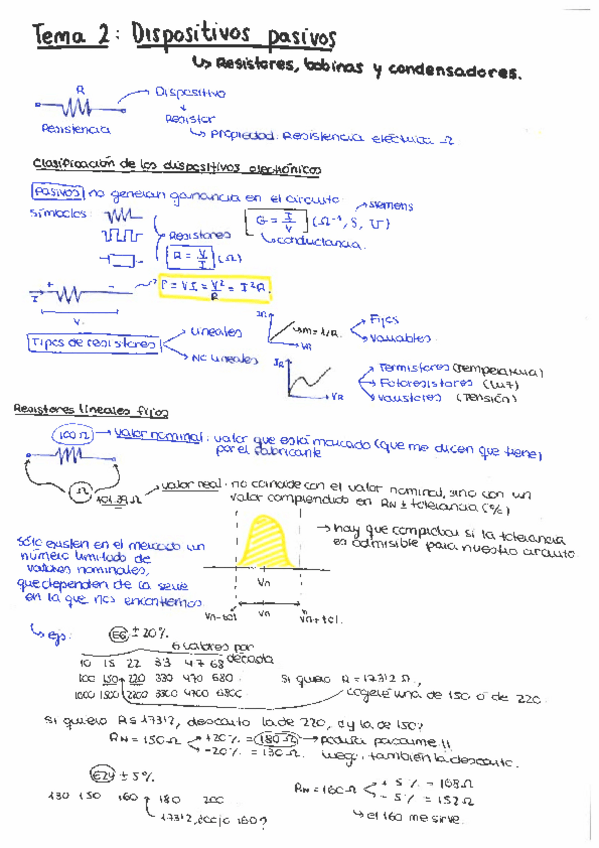 Tema 2: Dispositivos pasivos
↳ Resistores, bobinas y condensadores.
R
Dispositivo
Resistor
Resistencia
↳ Propiedad: Resistencia eléctrica Ω
Clasificación de los dispositivos electrónicos
Pasivos no generan ganancia en el circuito
siemens
Símbolos:
G = I/V (Ω⁻¹, S, ℧)
Resistores
conductancia.
R = V/I (Ω)
I + -
P = V I = V²/R = I²R.
V
IR
m = 1/R
VR
Fijos
Variables
Tipos de resistores
Lineales
No lineales
IR
VR
Termistores (Temperatura)
Fotoresistores (Luz)
Varistores (Tensión)
Resistores lineales fijos
100 Ω → valor nominal: valor que está marcado (que me dicen que tiene)
por el fabricante
Ω
101.39 Ω
valor real: no coincide con el valor nominal, sino con un
valor comprendido en RN ± tolerancia (%)
→ hay que comprobar si la tolerancia
es admisible para nuestro circuito
Sólo existen en el mercado un
número limitado de
valores nominales,
que dependen de la serie
en la que nos encontremos
Vn
Vn-tol Vn Vn+tol.
↳ ejs: E6 ± 20%
6 valores por
década
10 15 22 33 47 68
100 150 220 330 470 680
1000 1500 2200 3300 4700 6800
si quiero R = 173'12 Ω,
cogeré una de 150 o de 220.
si quiero R ≤ 173'12, descarto la de 220, ¿y la de 150?
RN = 150 Ω
+20% = 180 Ω → podría pasarme!!
-20% = 130 Ω
luego, también la descarto.
E24 ± 5%
130 150 160 180 200
173'12, ¿cojo 160?
RN = 160 Ω
+ 5% = 168 Ω
- 5% = 152 Ω
↳ el 160 me sirve.